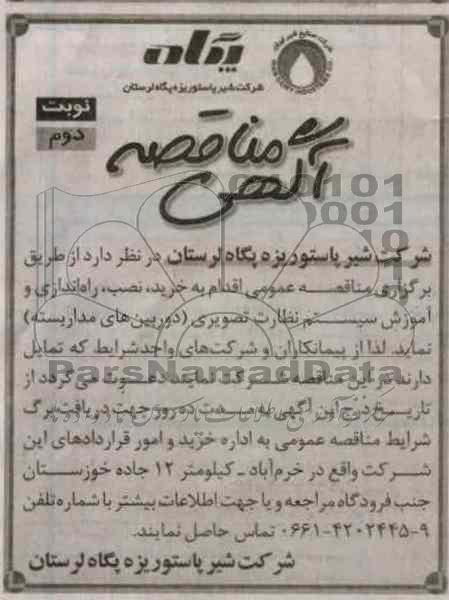 شرکت صنایع شیر ایران
پگاه
شرکت شیر پاستوریزه پگاه لرستان
نوبت
دوم
آگهی مناقصه
شرکت شیر پاستوریزه پگاه لرستان در نظر دارد از طریق
برگزاری مناقصه عمومی اقدام به خرید، نصب، راه‌اندازی و
آموزش سیستم نظارت تصویری (دوربین‌های مداربسته)
نماید. لذا از پیمانکاران و شرکت‌های واجد شرایط که تمایل
دارند در این مناقصه شرکت نمایند دعوت می‌گردد از
تاریخ درج این آگهی به مدت ده روز جهت دریافت برگ
شرایط مناقصه عمومی به اداره خرید و امور قراردادهای این
شرکت واقع در خرم‌آباد ـ کیلومتر ۱۲ جاده خوزستان
جنب فرودگاه مراجعه و یا جهت اطلاعات بیشتر با شماره تلفن
۹-۴۲۰۲۴۴۵-۰۶۶۱ تماس حاصل نمایند.
شرکت شیر پاستوریزه پگاه لرستان
ParsNamadData